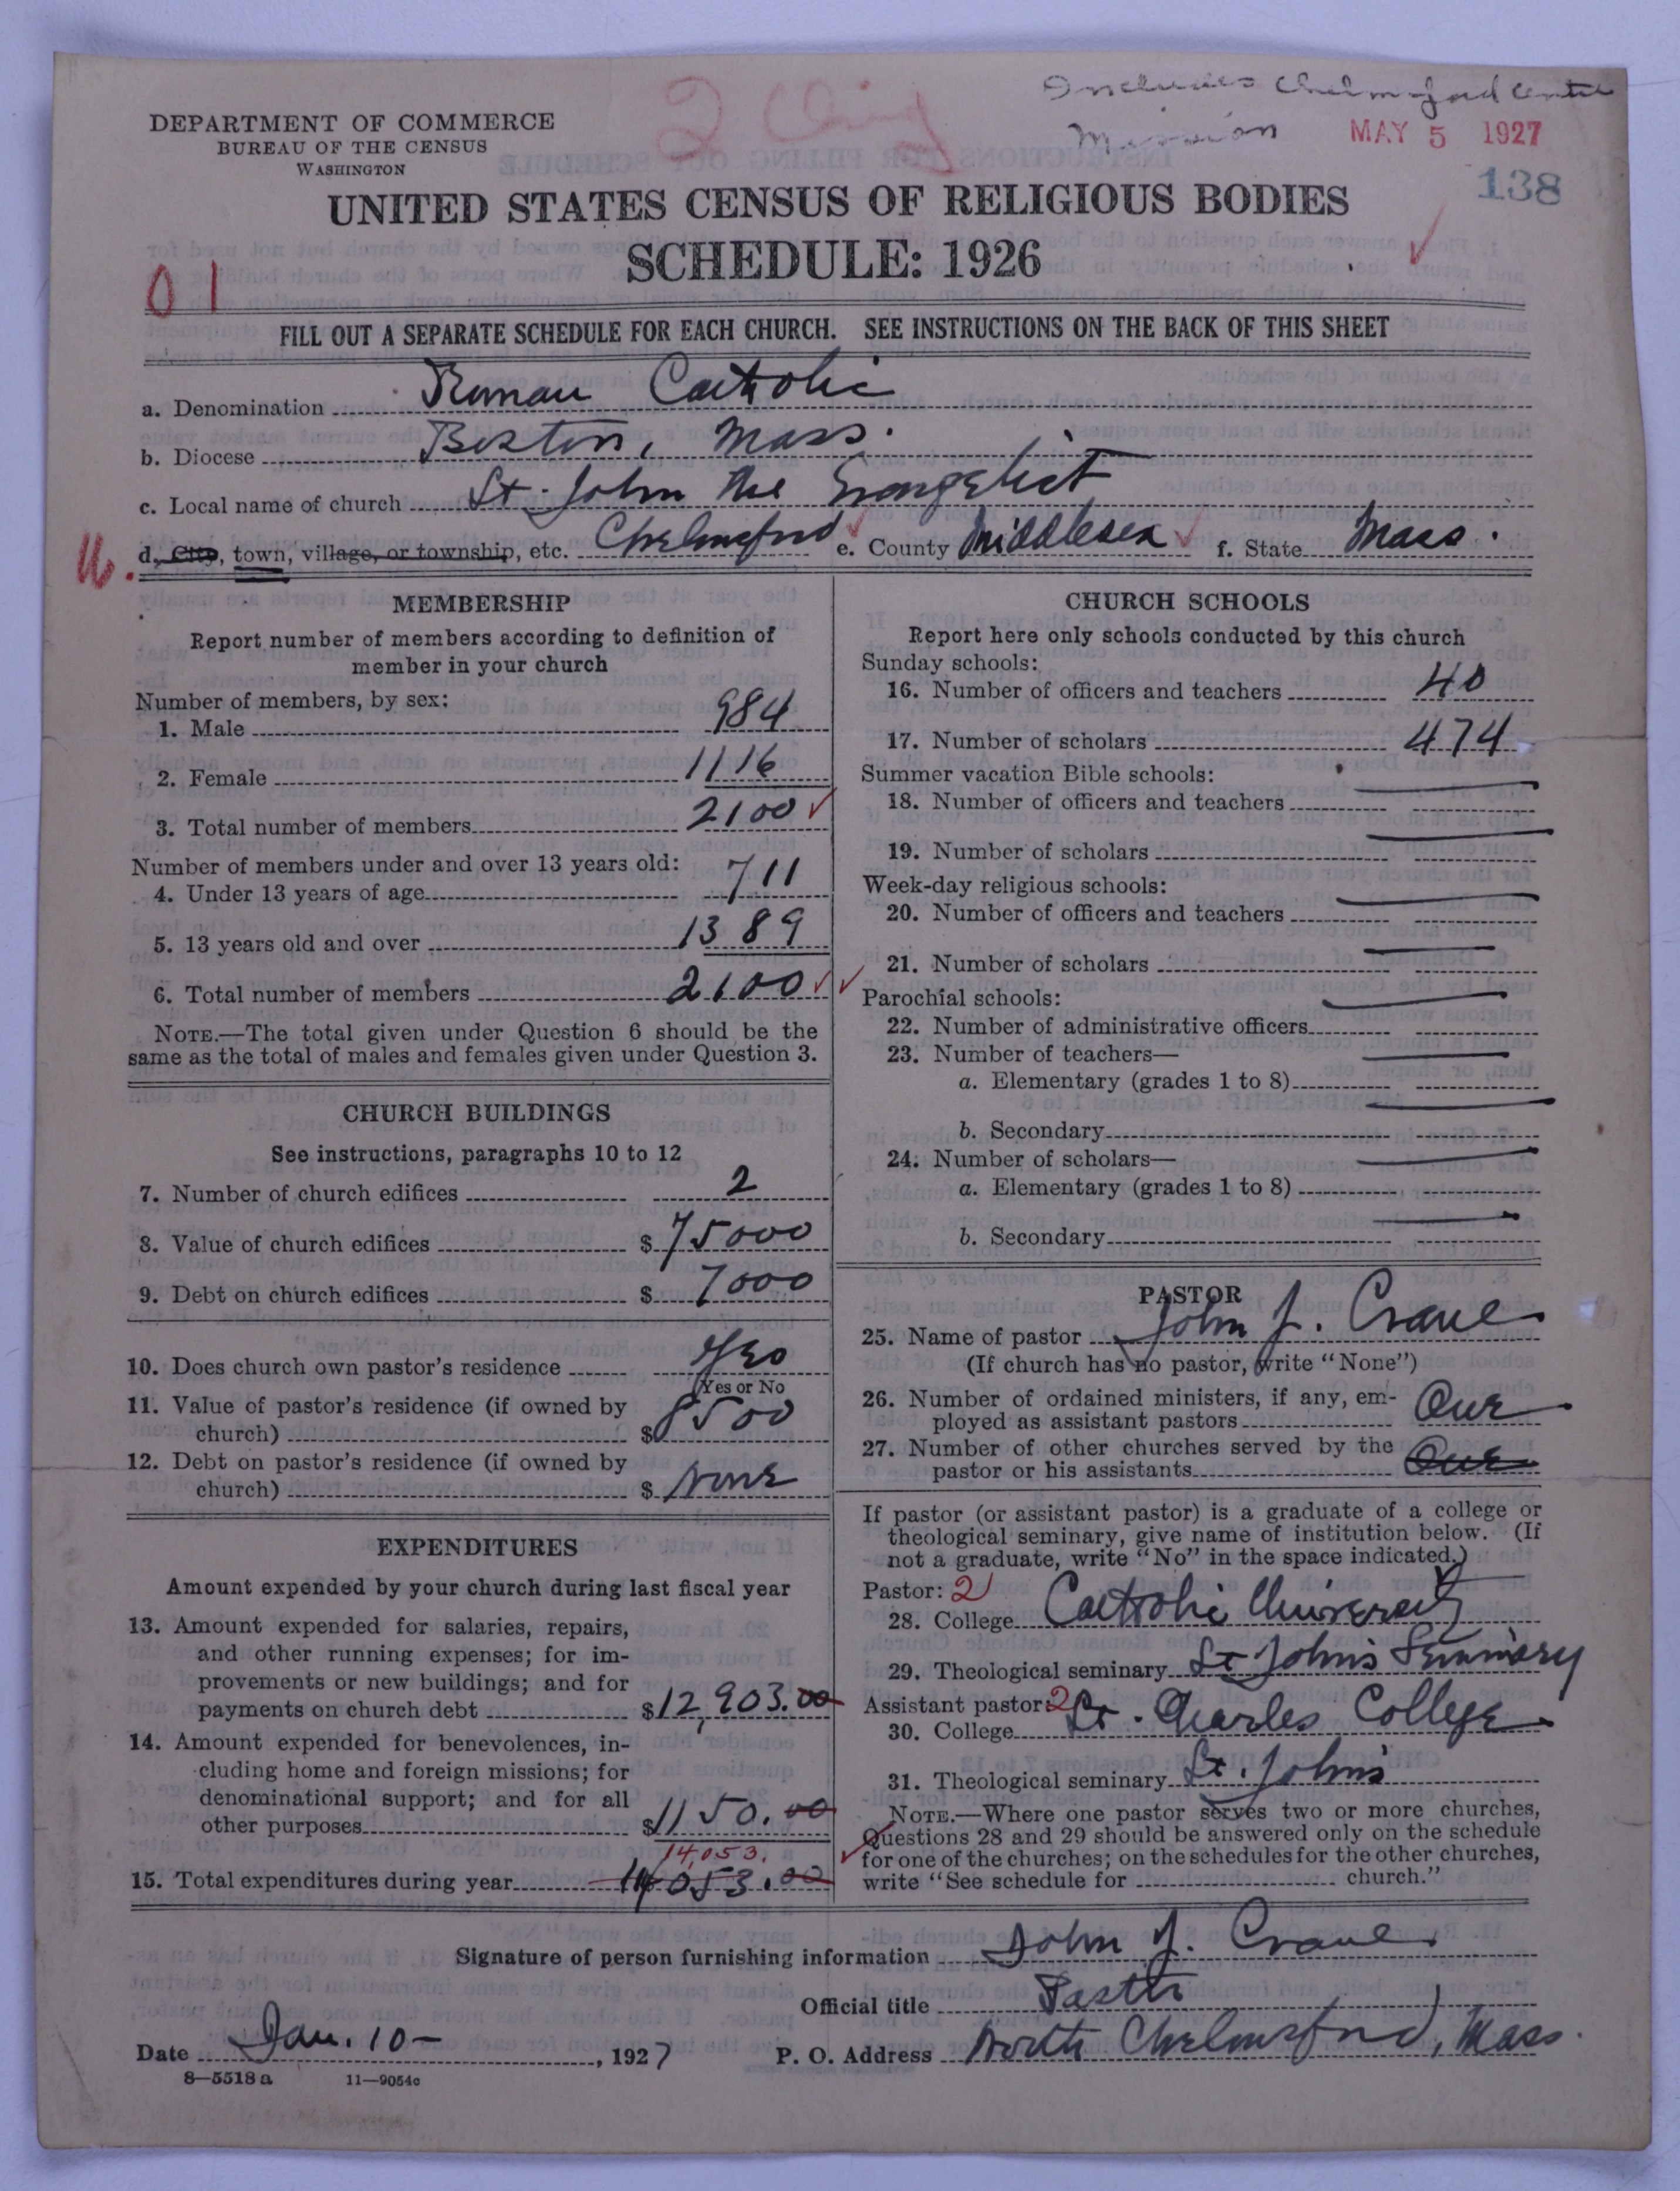 Includes Chelmsford Centre
Mission
MAY 5 1927
138
DEPARTMENT OF COMMERCE
BUREAU OF THE CENSUS
WASHINGTON
UNITED STATES CENSUS OF RELIGIOUS BODIES
SCHEDULE: 1926
01
FILL OUT A SEPARATE SCHEDULE FOR EACH CHURCH. SEE INSTRUCTIONS ON THE BACK OF THIS SHEET
a. Denomination Roman Catholic
b. Diocese Boston, Mass.
c. Local name of church St. John the Evangelist
d. City, town, village, or township, etc. Chelmsford e. County Middlesex f. State Mass.
MEMBERSHIP
Report number of members according to definition of
member in your church
Number of members, by sex:
1. Male 984
2. Female 1116
3. Total number of members 2100
Number of members under and over 13 years old:
4. Under 13 years of age 711
5. 13 years old and over 1389
6. Total number of members 2100
NOTE.—The total given under Question 6 should be the
same as the total of males and females given under Question 3.
CHURCH BUILDINGS
See instructions, paragraphs 10 to 12
7. Number of church edifices 2
8. Value of church edifices $ 75000
9. Debt on church edifices $ 7000
10. Does church own pastor's residence Yes
Yes or No
11. Value of pastor's residence (if owned by
church) $ 8500
12. Debt on pastor's residence (if owned by
church) $ None
EXPENDITURES
Amount expended by your church during last fiscal year
13. Amount expended for salaries, repairs,
and other running expenses; for im-
provements or new buildings; and for
payments on church debt $ 12,903.00
14. Amount expended for benevolences, in-
cluding home and foreign missions; for
denominational support; and for all
other purposes $ 1150.00
14,053.
15. Total expenditures during year 14053.00
CHURCH SCHOOLS
Report here only schools conducted by this church
Sunday schools:
16. Number of officers and teachers 40
17. Number of scholars 474
Summer vacation Bible schools:
18. Number of officers and teachers
19. Number of scholars
Week-day religious schools:
20. Number of officers and teachers
21. Number of scholars
Parochial schools:
22. Number of administrative officers
23. Number of teachers—
a. Elementary (grades 1 to 8)
b. Secondary
24. Number of scholars—
a. Elementary (grades 1 to 8)
b. Secondary
PASTOR
25. Name of pastor John J. Crane
(If church has no pastor, write "None")
26. Number of ordained ministers, if any, em-
ployed as assistant pastors One
27. Number of other churches served by the
pastor or his assistants One
If pastor (or assistant pastor) is a graduate of a college or
theological seminary, give name of institution below. (If
not a graduate, write "No" in the space indicated.)
Pastor: 2
28. College Catholic University
29. Theological seminary St. John's Seminary
Assistant pastor: 2
30. College St. Charles College
31. Theological seminary St. John's
NOTE.—Where one pastor serves two or more churches,
Questions 28 and 29 should be answered only on the schedule
for one of the churches; on the schedules for the other churches,
write "See schedule for church."
Signature of person furnishing information John J. Crane
Official title Pastor
Date Jan. 10 - , 1927 P. O. Address North Chelmsford, Mass.
8—5518 a 11—9054c